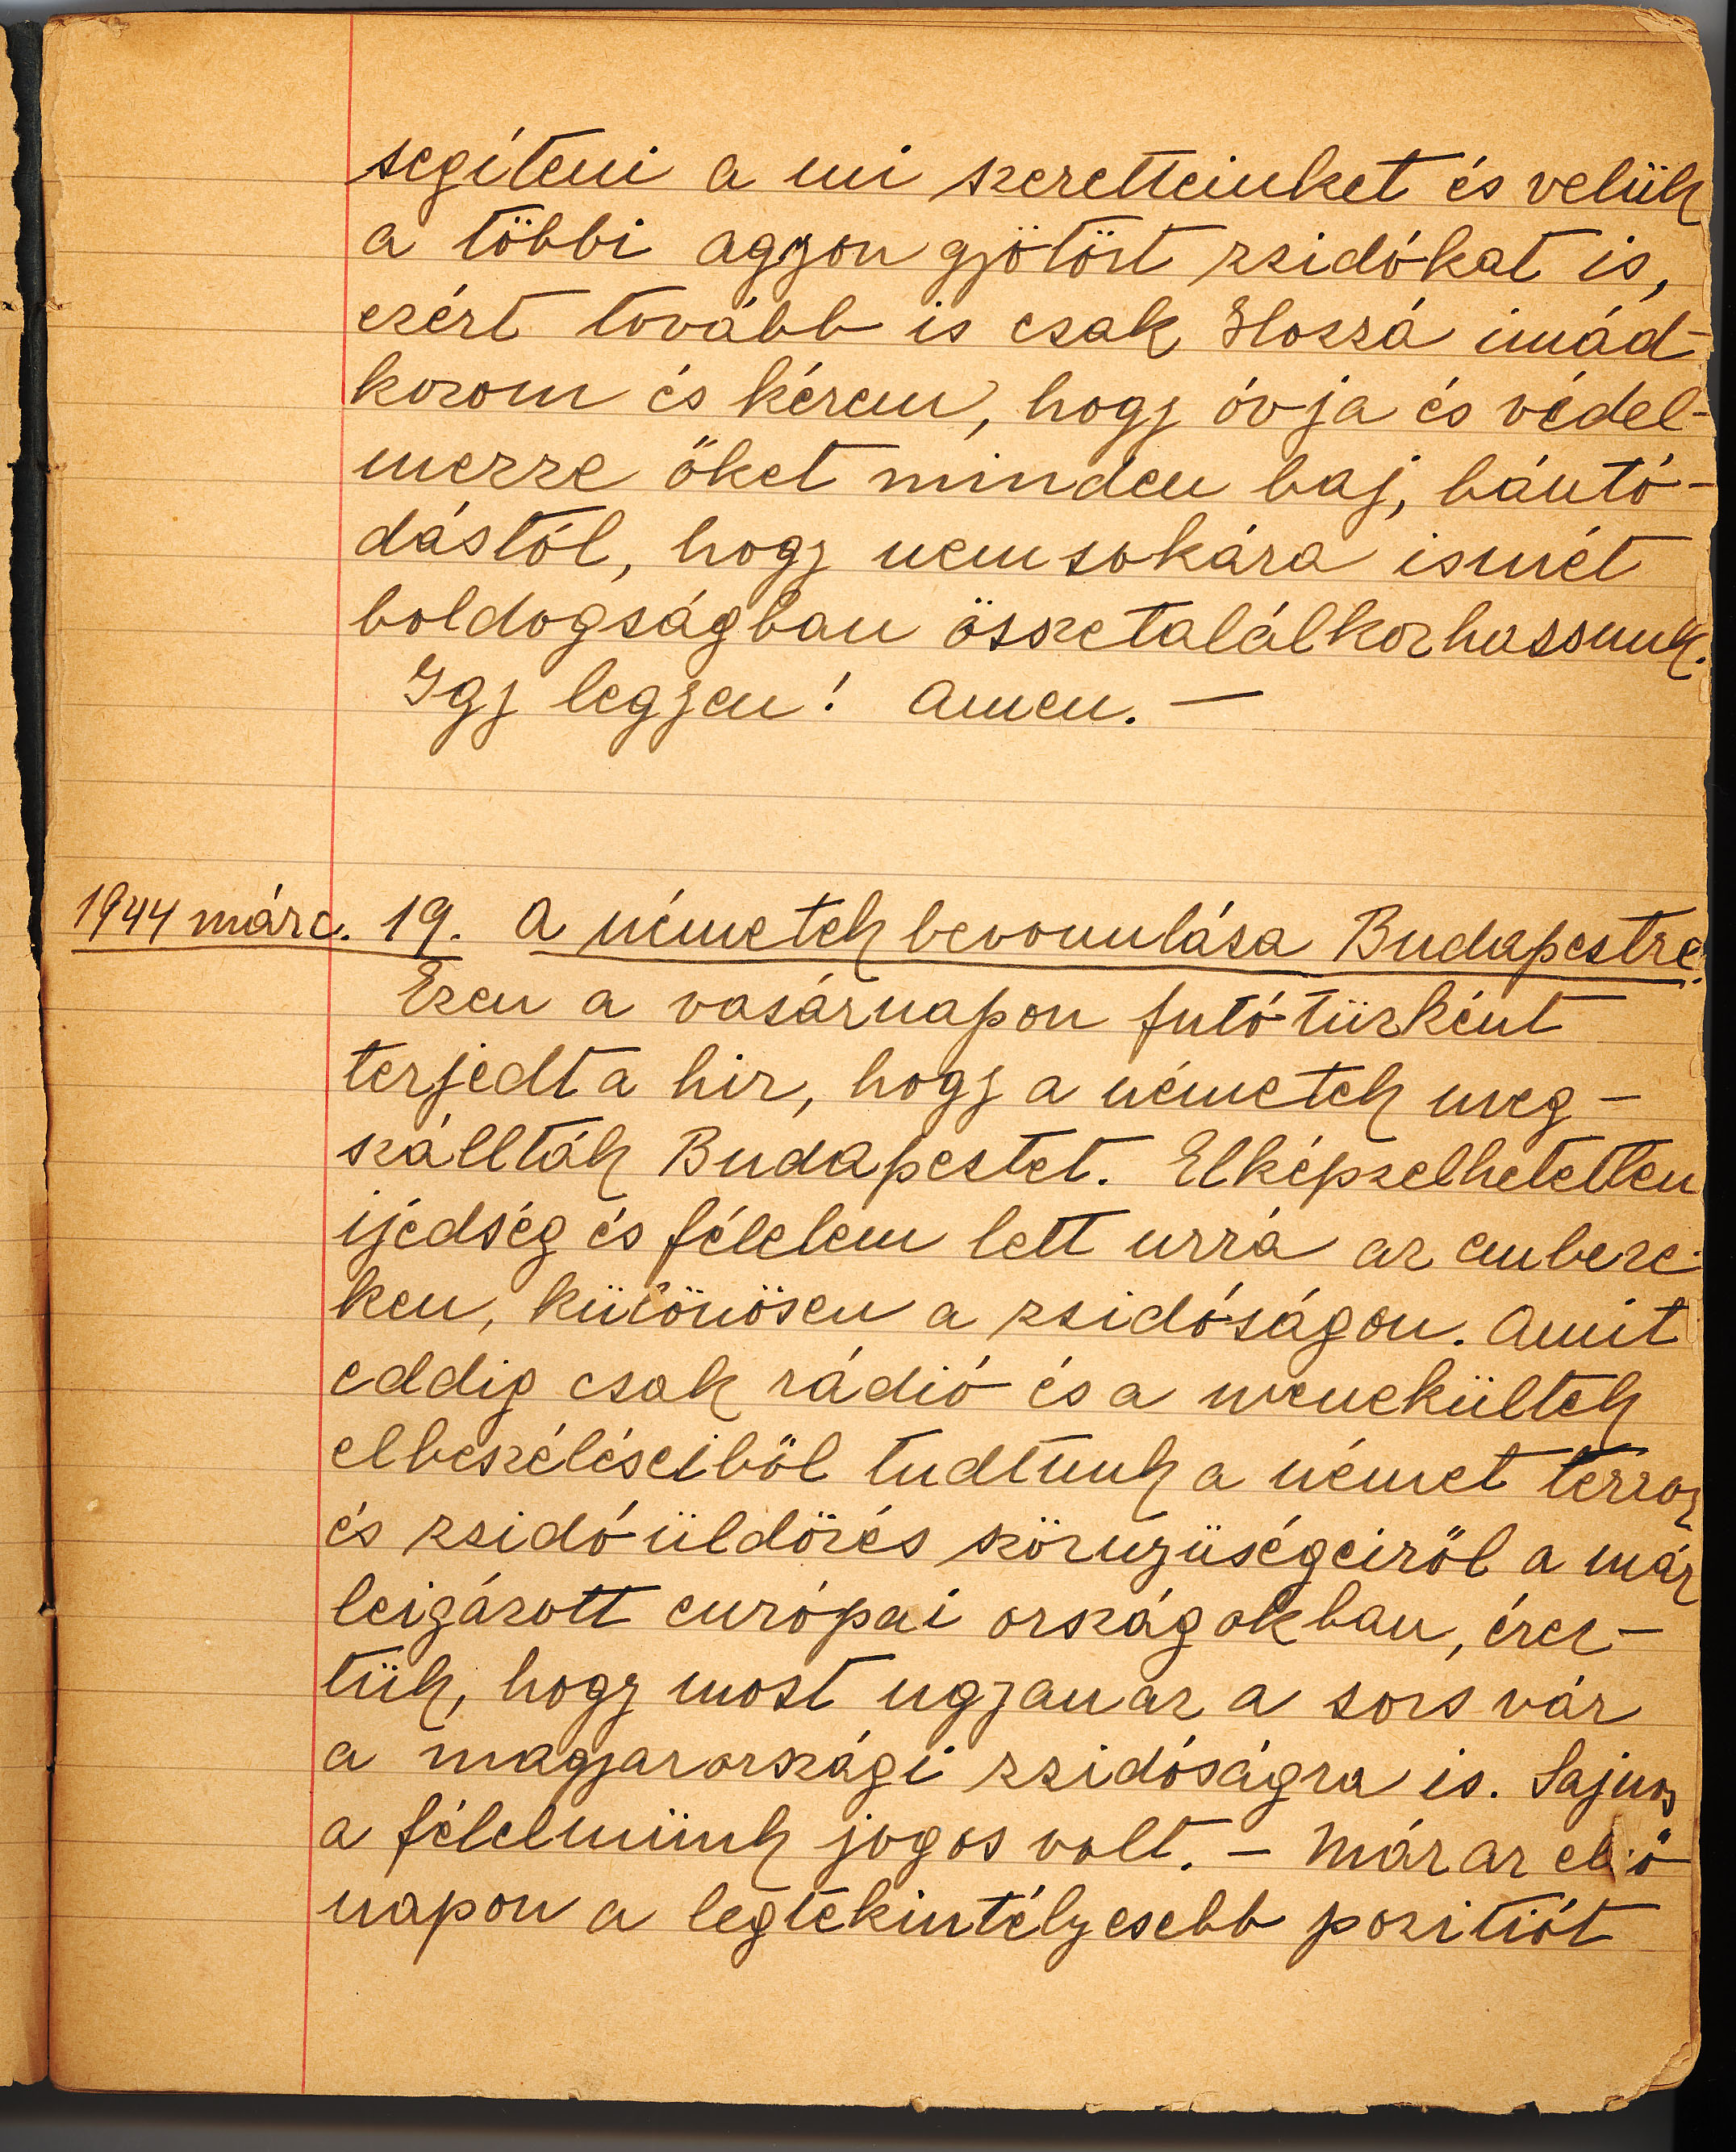 segíteni a mi szeretteinket és velük
a többi agyon gyötört zsidókat is,
ezért tovább is csak Hozzá imád-
kozom és kérem, hogy óvja és védel-
mezze őket minden baj, bántó-
dástól, hogy nemsokára ismét
boldogságban összetalálkozhassunk.
Igy legyen! Amen. —
1944 márc. 19. A németek bevonulása Budapestre.
Ezen a vasárnapon futótüzként
terjedt a hir, hogy a németek meg-
szállták Budapestet. Elképzelhetetlen
ijedség és félelem lett urrá az embere-
ken, különösen a zsidóságon. Amit
eddig csak rádió és a menekültek
elbeszéléseiből tudtunk a német terror
és zsidóüldözés szörnyüségeiről a már
leigázott európai országokban, érez-
tük, hogy most ugyanaz a sors vár
a magyarországi zsidóságra is. Sajnos
a félelmünk jogos volt. — Már az első
napon a legtekintélyesebb pozitiót